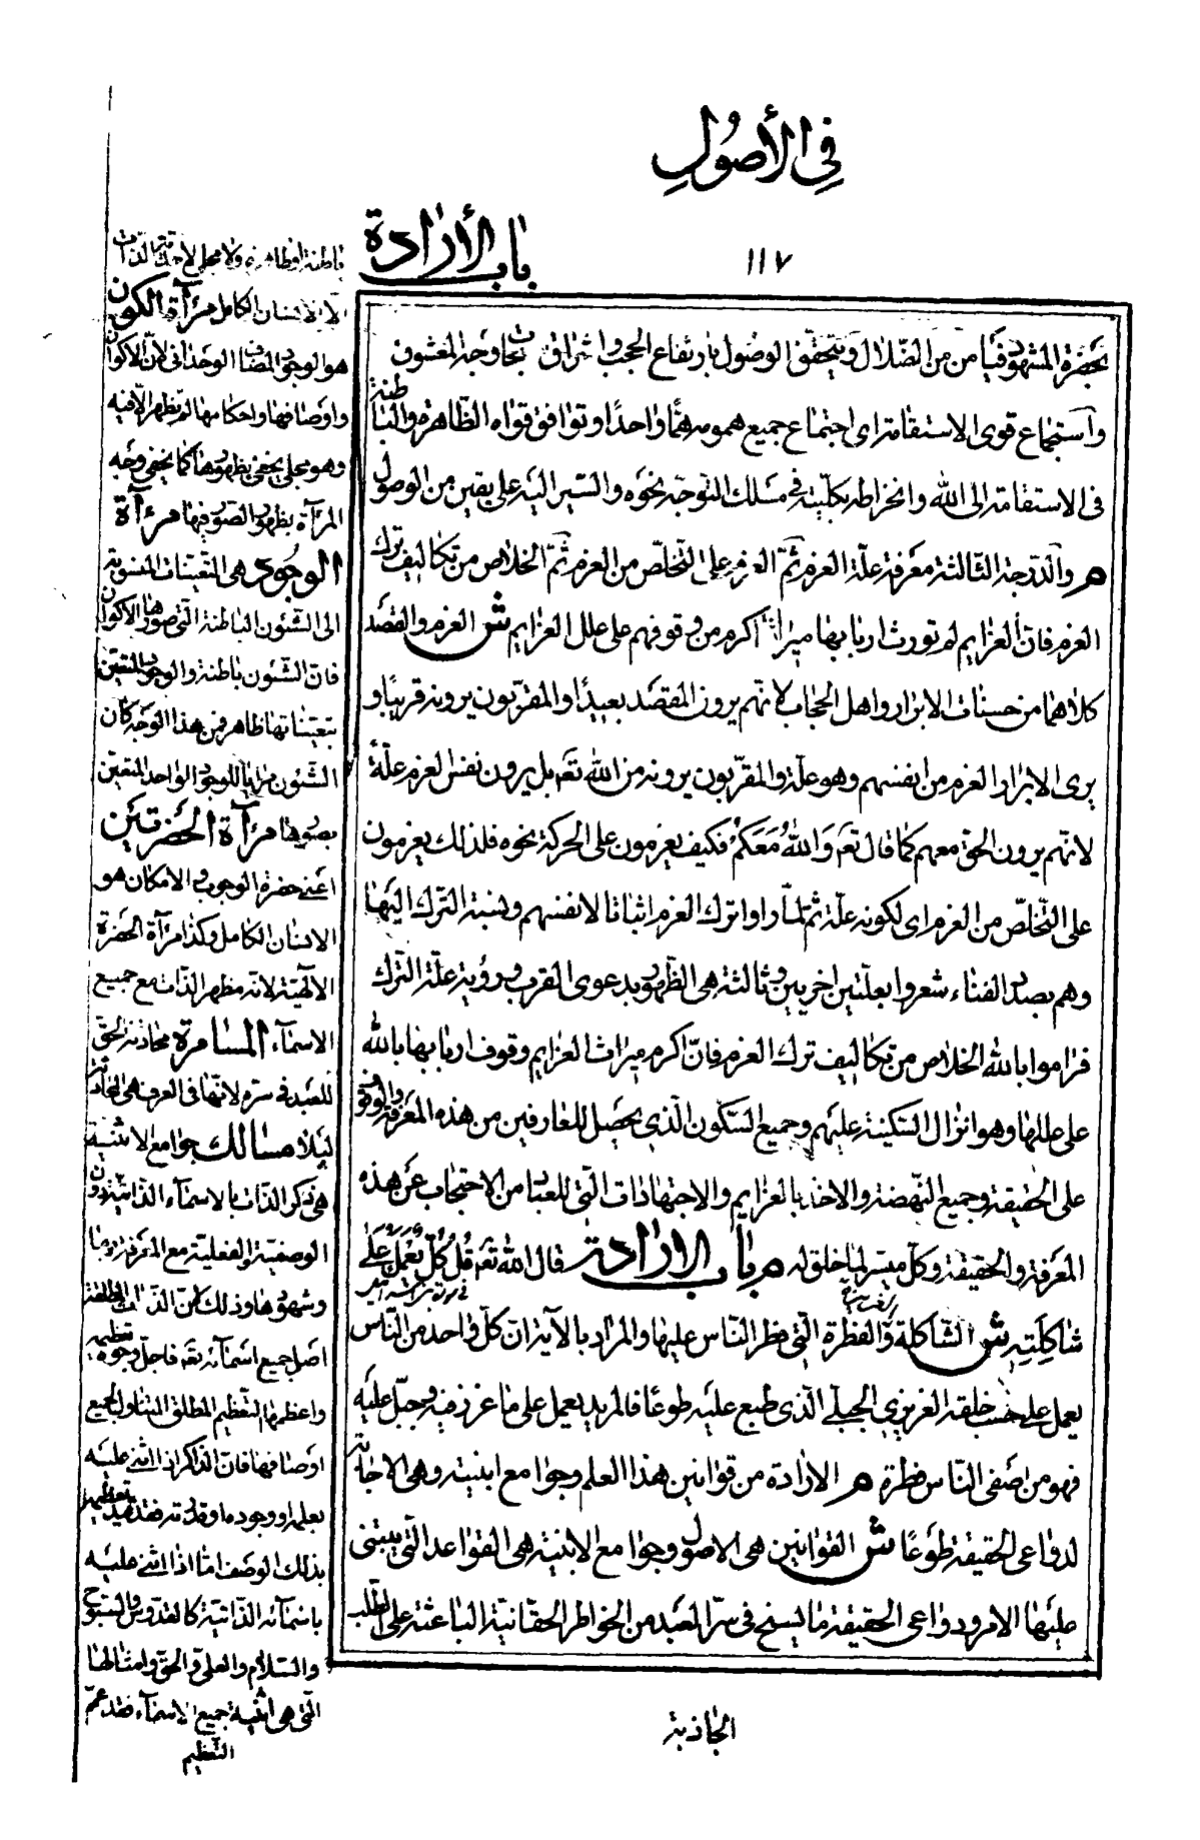 في الأصول
باب الأرادة
١١٧
بحضرة المشهود فيأمن من الضلال ويتحقق الوصول بارتفاع الحجب واشراق نجاوجة المعشوق
واستجماع قوى الاستقامة اى اجتماع جميع همومه همًّا واحدًا وتوافق قواه الظاهرة والباطنة
فى الاستقامة الى الله وانخراطه بكليته فى مسلك التوجه نحوه والسير اليه على يقين من الوصول
م والدرجة الثالثة معرفة علة العزم ثم العزم على التخلص من العزم ثم الخلاص من تكاليف ترك
العزم فان العزايم لم تورث اربابها ميراثا اكرم من وقوفهم على علل العزايم ش العزم والقصد
كلاهما من حسنات الابرار واهل الحجاب لانهم يرون المقصد بعيدًا والمقربون يرونه قريبًا و
يرى الابرار العزم من انفسهم وهو علة والمقربون يرونه من الله تعم بل يرون نفس العزم علة
لانهم يرون الحق معهم كما قال تعم وَاللهُ مَعَكُمْ فكيف يعزمون على الحركة نحوه فلذلك يعزمون
على التخلص من العزم اى لكونه علة ثم لما راوا ترك العزم اثباتا لانفسهم ونسبة الترك اليها
وهم بصدد الفناء شعروا بعلتين اخريين وثالثة هى الظهور بدعوى القرب برؤية علة الترك
فراموا بالله الخلاص من تكاليف ترك العزم فان اكرم ميراث العزايم وقوف اربابها بالله
على عللها وهو انزال السكينة عليهم وجميع السكون الذى يحصل للعارفين من هذه المعرفة والوقوف
على الحقيقة وجميع النهضة والاخذ بالعزايم والاجتهادات التى للعباد من الاحتجاب عن هذه
المعرفة والحقيقة وكل ميسر لما خلق له م باب الارادة قال الله تعم قُل كُلٌّ يَعْمَلُ عَلَى
شَاكِلَتِهِ ش الشاكلة والفطرة التى فطر الناس عليها والمراد بالآية ان كل واحد من الناس
يعمل على حسب خلقته الغريزى الجبلى الذى طبع عليه طوعًا فالمريد يعمل على ما غرز فيه وجبل عليه
فهو من اصفى الناس فطرة م الارادة من قوانين هذا العلم وجوامع ابنيته وهى الاجابة
لدواعى الحقيقة طوعًا ش القوانين هى الاصول وجوامع الابنية هى القواعد التى يبتنى
عليها الامر ودواعى الحقيقة ما يسنح فى سر العبد من الخواطر الحقانية الباعثة على الطلب
الجاذبة
الا الانسان الكامل مرآة الكون
هو الوجود المضاف الوحدانى لان الاكوان
واوصافها واحكامها لم تظهر الا فيه
وهو يخفى بظهورها كما يخفى وجه
المرآة بظهور الصور فيها مرآة
الوجود هى التعينات المنسوبة
الى الشئون الباطنة التى صورها الاكوان
فان الشئون باطنة والوجود المتعين
بتعيناتها ظاهر فمن هذا الوجه كان
الشئون مرايا للوجود الواحد المتعين
بصورها مرآة الحضرتين
اعنى حضرة الوجوب والامكان هو
الانسان الكامل وكذا مرآة الحضرة
الالهية لانه مظهر الذات مع جميع
الاسماء المسامرة محادثة الحق
للعبد فى سره لانها فى العرف هى المحادثة
ليلا مسالك جوامع الاثنية
هى ذكر الذات بالاسماء الذاتية دون
الوصفية والفعلية مع المعرفة بها
وشهودها وذلك لان الذات المطلقة
اصل جميع اسمائه تعم فاجل وجوه تعظيمه
واعظمها التعظيم المطلق المتناول لجميع
اوصافها فان الذاكر اذا اثنى عليه
بعلمه او وجوده او قدرته فقد قيد تعظيمه
بذلك الوصف اما اذا اثنى عليه
باسمائه الذاتية كالقدوس والسبوح
والسلام والعلى والحق وامثالها
التى هى اثنية جميع الاسماء فقد عم
التعظيم